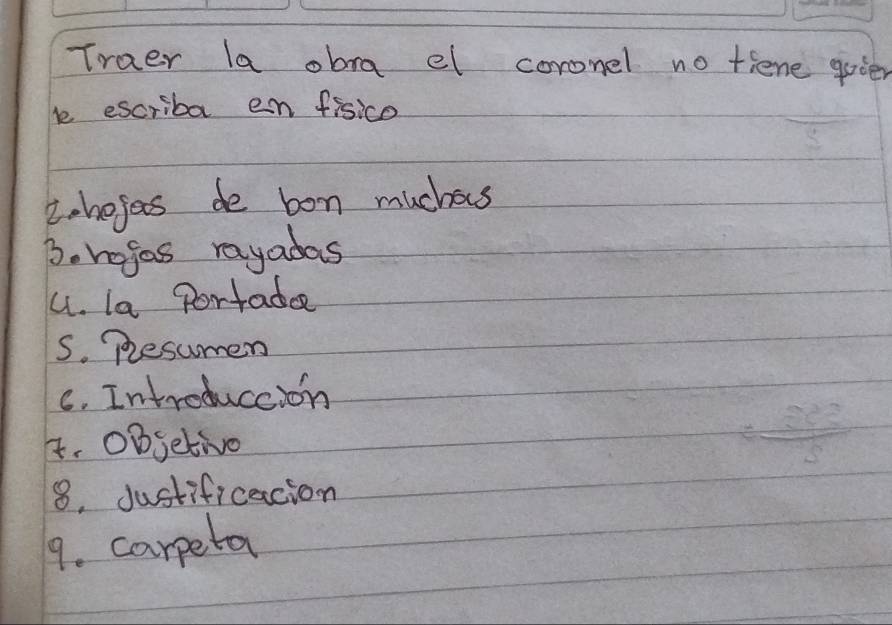 Traer la obra el coronel no tiene quien
le escriba en fisico
2. hojas de bon muchas
3. hojas rayadas
4. la Portada
5. Resumen
6. Introducción
7. OBjetivo
8. Justificacion
9. carpeta